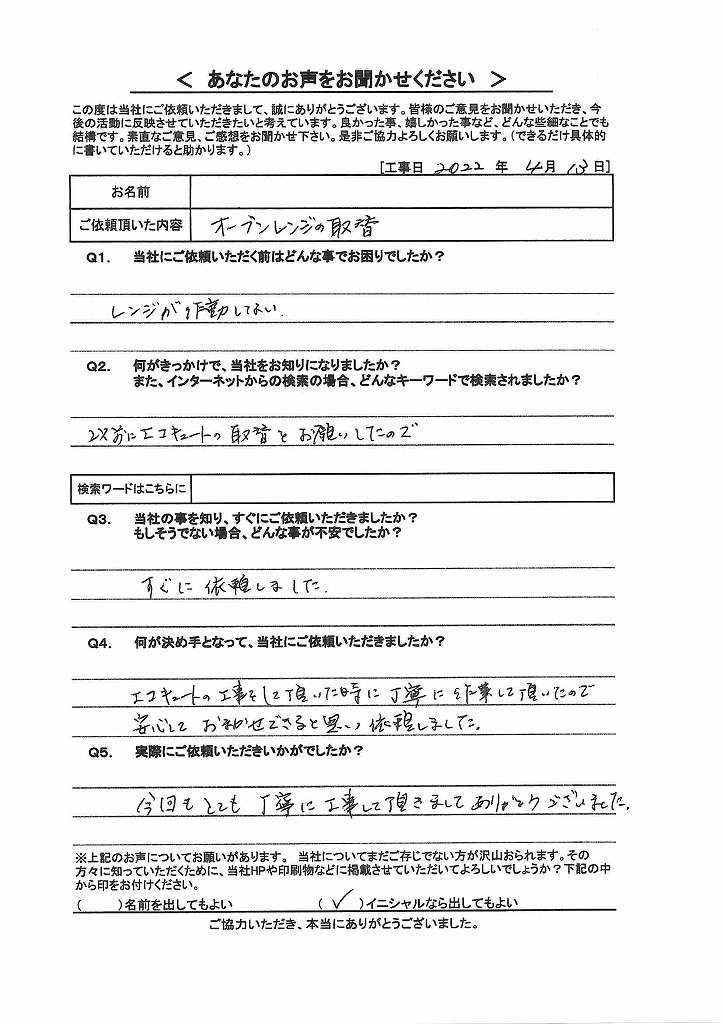 ＜ あなたのお声をお聞かせください ＞
この度は当社にご依頼いただきまして、誠にありがとうございます。皆様のご意見をお聞かせいただき、今
後の活動に反映させていただきたいと考えています。良かった事、嬉しかった事など、どんな些細なことでも
結構です。素直なご意見、ご感想をお聞かせ下さい。是非ご協力よろしくお願いします。(できるだけ具体的
に書いていただけると助かります。)
[工事日 2022 年 4月 13日]
お名前
ご依頼頂いた内容 オーブンレンジの取替
Q1. 当社にご依頼いただく前はどんな事でお困りでしたか？
レンジが作動してない.
Q2. 何がきっかけで、当社をお知りになりましたか？
また、インターネットからの検索の場合、どんなキーワードで検索されましたか？
以前にエコキュートの取替をお願いしたので
検索ワードはこちらに
Q3. 当社の事を知り、すぐにご依頼いただきましたか？
もしそうでない場合、どんな事が不安でしたか？
すぐに依頼しました.
Q4. 何が決め手となって、当社にご依頼いただきましたか？
エコキュートの工事をして頂いた時に丁寧に作業して頂いたので
安心して お まかせできると思い依頼しました。
Q5. 実際にご依頼いただきいかがでしたか？
今回もとても 丁寧に工事して頂きましてありがとうございました.
※上記のお声についてお願いがあります。 当社についてまだご存じでない方が沢山おられます。その
方々に知っていただくために、当社HPや印刷物などに掲載させていただいてよろしいでしょうか？下記の中
から印をお付けください。
( )名前を出してもよい (✓)イニシャルなら出してもよい
ご協力いただき、本当にありがとうございました。